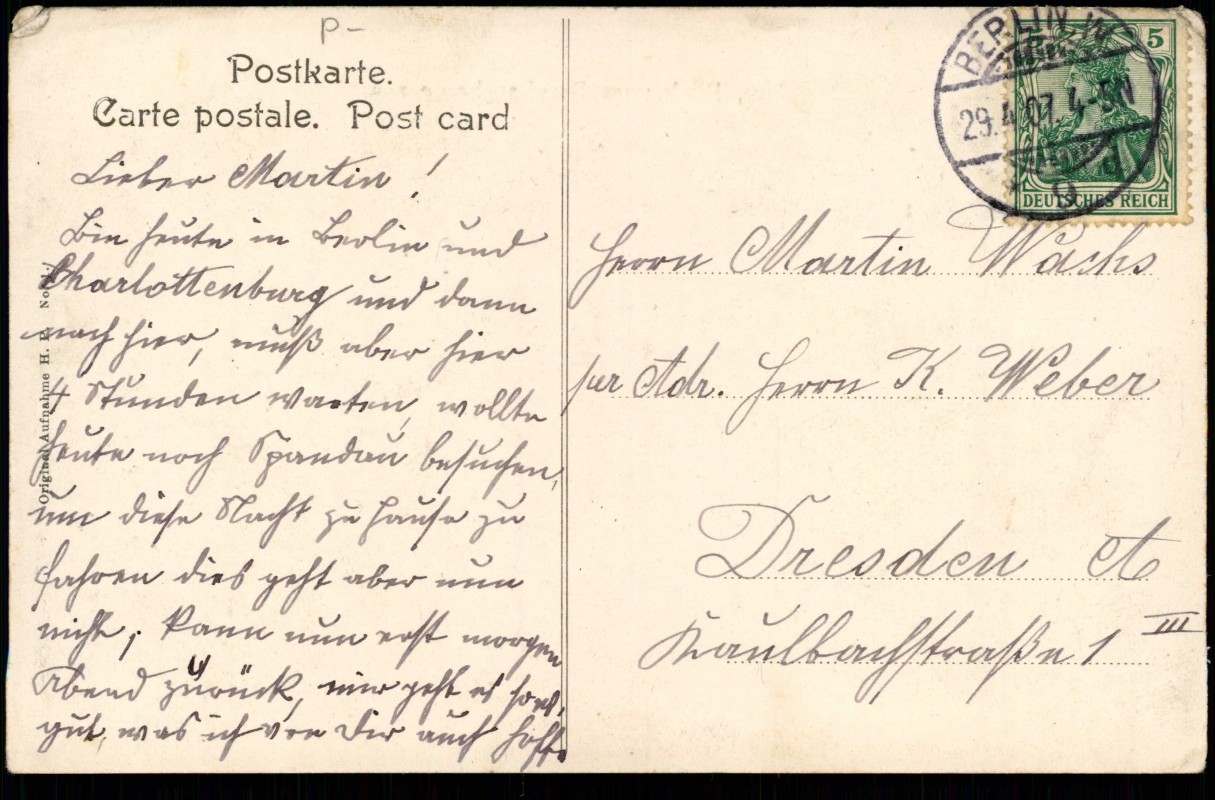 P-
Postkarte.
Carte postale. Post card
Lieber Martin!
Bin heute in Berlin und
Charlottenburg und dann
nach hier, muß aber hier
4 Stunden warten, wollte
heute noch Spandau besuchen,
um diese Nacht zu Hause zu
fahren dies geht aber nun
nicht, kann nun erst morgen
Abend zurück, mir geht es sow.
gut, was ich von Dir auch hoffe.
Original-Aufnahme H.
BERLIN W
29.4.07. 4-5N
9
5
DEUTSCHES REICH
Herrn Martin Wachs
per Adr. Herrn K. Weber
Dresden A
Kaulbachstraße 1 III